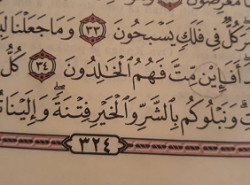 معرضون
وكل في فلك يسبحون ٣٣ وما جعلنا
أفإين مت فهم الخالدون ٣٤ كل
ونبلوكم بالشر والخير فتنة وإلينا
٣٢٤